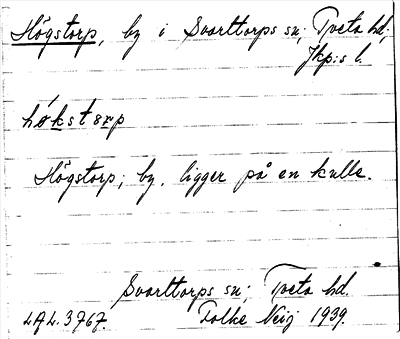 Högstorp, by i Svarttorps sn; Tveta hd;
Jkp:s l.
hókstorp
Högstorp; by, ligger på en kulle.
Svarttorps sn; Tveta hd.
LAL. 3767. Folke 1939.